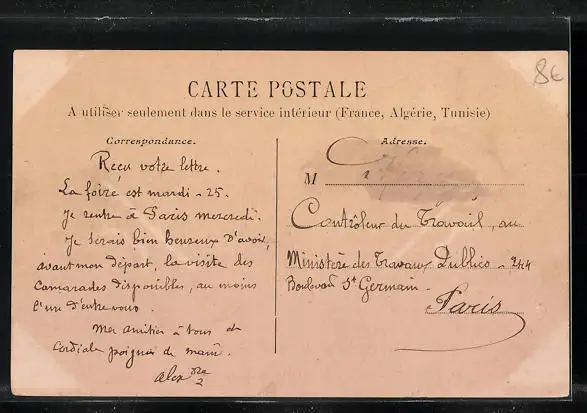 8€
CARTE POSTALE
A utiliser seulement dans le service intérieur (France, Algérie, Tunisie)
Correspondance.
Reçu votre lettre.
La foire est mardi - 25.
Je rentre à Paris mercredi.
Je serais bien heureux d'avoir,
avant mon départ, la visite des
Camarades disponibles, au moins
l'un d'entre vous.
Mes amitiés à tous et
cordiale poignée de main.
Alex
Adresse.
M
Contrôleur du Travail, au
Ministère des Travaux Publics - 244
Boulevard St Germain -
Paris